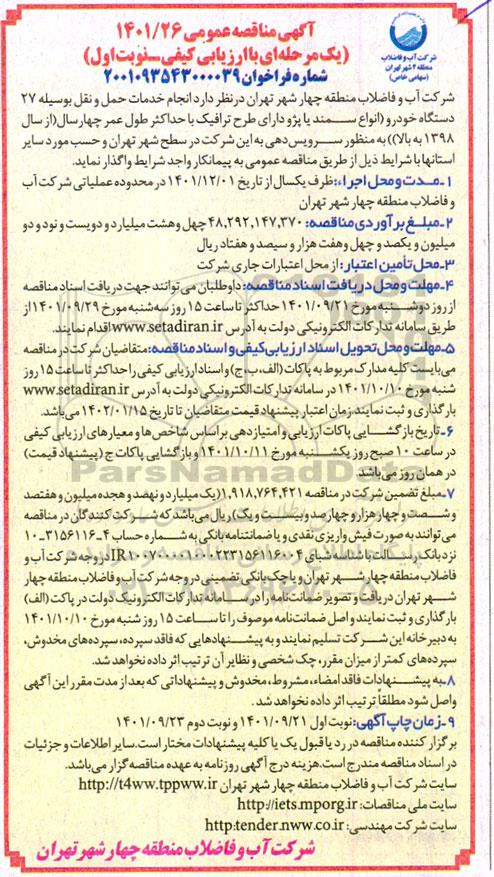 آگهی مناقصه عمومی ۱۴۰۱/۲۶
(یک مرحله‌ای با ارزیابی کیفی ـ نوبت اول)
شماره فراخوان ۲۰۰۱۰۹۳۵۴۳۰۰۰۰۳۹
شرکت آب و فاضلاب
منطقه ۴ شهر تهران
(سهامی خاص)
شرکت آب و فاضلاب منطقه چهار شهر تهران در نظر دارد انجام خدمات حمل و نقل بوسیله ۲۷
دستگاه خودرو (انواع سمند یا پژو دارای طرح ترافیک با حداکثر طول عمر چهار سال (از سال
۱۳۹۸ به بالا)) به منظور سرویس‌دهی به این شرکت در سطح شهر تهران و حسب مورد سایر
استانها با شرایط ذیل از طریق مناقصه عمومی به پیمانکار واجد شرایط واگذار نماید.
۱ـ مدت و محل اجراء: ظرف یکسال از تاریخ ۱۴۰۱/۱۲/۰۱ در محدوده عملیاتی شرکت آب
و فاضلاب منطقه چهار شهر تهران
۲ـ مبلغ برآوردی مناقصه: ۴۸,۲۹۲,۱۴۷,۳۷۰ چهل و هشت میلیارد و دویست و نود و دو
میلیون و یکصد و چهل و هفت هزار و سیصد و هفتاد ریال
۳ـ محل تأمین اعتبار: از محل اعتبارات جاری شرکت
۴ـ مهلت و محل دریافت اسناد مناقصه: داوطلبان می‌توانند جهت دریافت اسناد مناقصه
از روز دوشنبه مورخ ۱۴۰۱/۰۹/۲۱ حداکثر تا ساعت ۱۵ روز سه‌شنبه مورخ ۱۴۰۱/۰۹/۲۹ از
طریق سامانه تدارکات الکترونیکی دولت به آدرس www.setadiran.ir اقدام نمایند.
۵ـ مهلت و محل تحویل اسناد ارزیابی کیفی و اسناد مناقصه: متقاضیان شرکت در مناقصه
می‌بایست کلیه مدارک مربوط به پاکات (الف، ب، ج) و اسناد ارزیابی کیفی را حداکثر تا ساعت ۱۵ روز
شنبه مورخ ۱۴۰۱/۱۰/۱۰ در سامانه تدارکات الکترونیکی دولت به آدرس www.setadiran.ir
بارگذاری و ثبت نمایند. زمان اعتبار پیشنهاد قیمت متقاضیان تا تاریخ ۱۴۰۲/۰۱/۱۵ می‌باشد.
۶ـ تاریخ بازگشایی پاکات ارزیابی و امتیازدهی براساس شاخص‌ها و معیارهای ارزیابی کیفی
در ساعت ۱۰ صبح روز یکشنبه مورخ ۱۴۰۱/۱۰/۱۱ و بازگشایی پاکات ج (پیشنهاد قیمت)
در همان روز می‌باشد.
۷ـ مبلغ تضمین شرکت در مناقصه ۱,۹۱۸,۷۶۴,۴۲۱ (یک میلیارد و نهصد و هجده میلیون و هفتصد
و شصت و چهار هزار و چهارصد و بیست و یک) ریال می‌باشد که شرکت کنندگان در مناقصه
می‌توانند به صورت فیش واریزی نقدی و یا ضمانتنامه بانکی به شماره حساب ۴ـ۳۱۵۶۱۱۶ـ۱۰
نزد بانک رسالت با شناسه شبای در وجه شرکت آب و
فاضلاب منطقه چهار شهر تهران و یا چک بانکی تضمینی در وجه شرکت آب و فاضلاب منطقه چهار
شهر تهران دریافت و تصویر ضمانت‌نامه را در سامانه تدارکات الکترونیک دولت در پاکت (الف)
بارگذاری و ثبت نمایند و اصل ضمانت‌نامه موصوف را تا ساعت ۱۵ روز شنبه مورخ ۱۴۰۱/۱۰/۱۰
به دبیرخانه این شرکت تسلیم نمایند و به پیشنهادهایی که فاقد سپرده، سپرده‌های مخدوش،
سپرده‌های کمتر از میزان مقرر، چک شخصی و نظایر آن ترتیب اثر داده نخواهد شد.
۸ـ به پیشنهادات فاقد امضاء، مشروط، مخدوش و پیشنهاداتی که بعد از مدت مقرر این آگهی
واصل شود مطلقاً ترتیب اثر داده نخواهد شد.
۹ـ زمان چاپ آگهی: نوبت اول ۱۴۰۱/۰۹/۲۱ و نوبت دوم ۱۴۰۱/۰۹/۲۳
برگزار کننده مناقصه در رد یا قبول یک یا کلیه پیشنهادات مختار است. سایر اطلاعات و جزئیات
در اسناد مناقصه مندرج است. هزینه درج آگهی روزنامه به عهده مناقصه گزار می‌باشد.
سایت شرکت آب و فاضلاب منطقه چهار شهر تهران http://t4ww.tppww.ir
سایت ملی مناقصات: http://iets.mporg.ir
سایت شرکت مهندسی: http:tender.nww.co.ir
شرکت آب و فاضلاب منطقه چهار شهر تهران
ParsNamadData